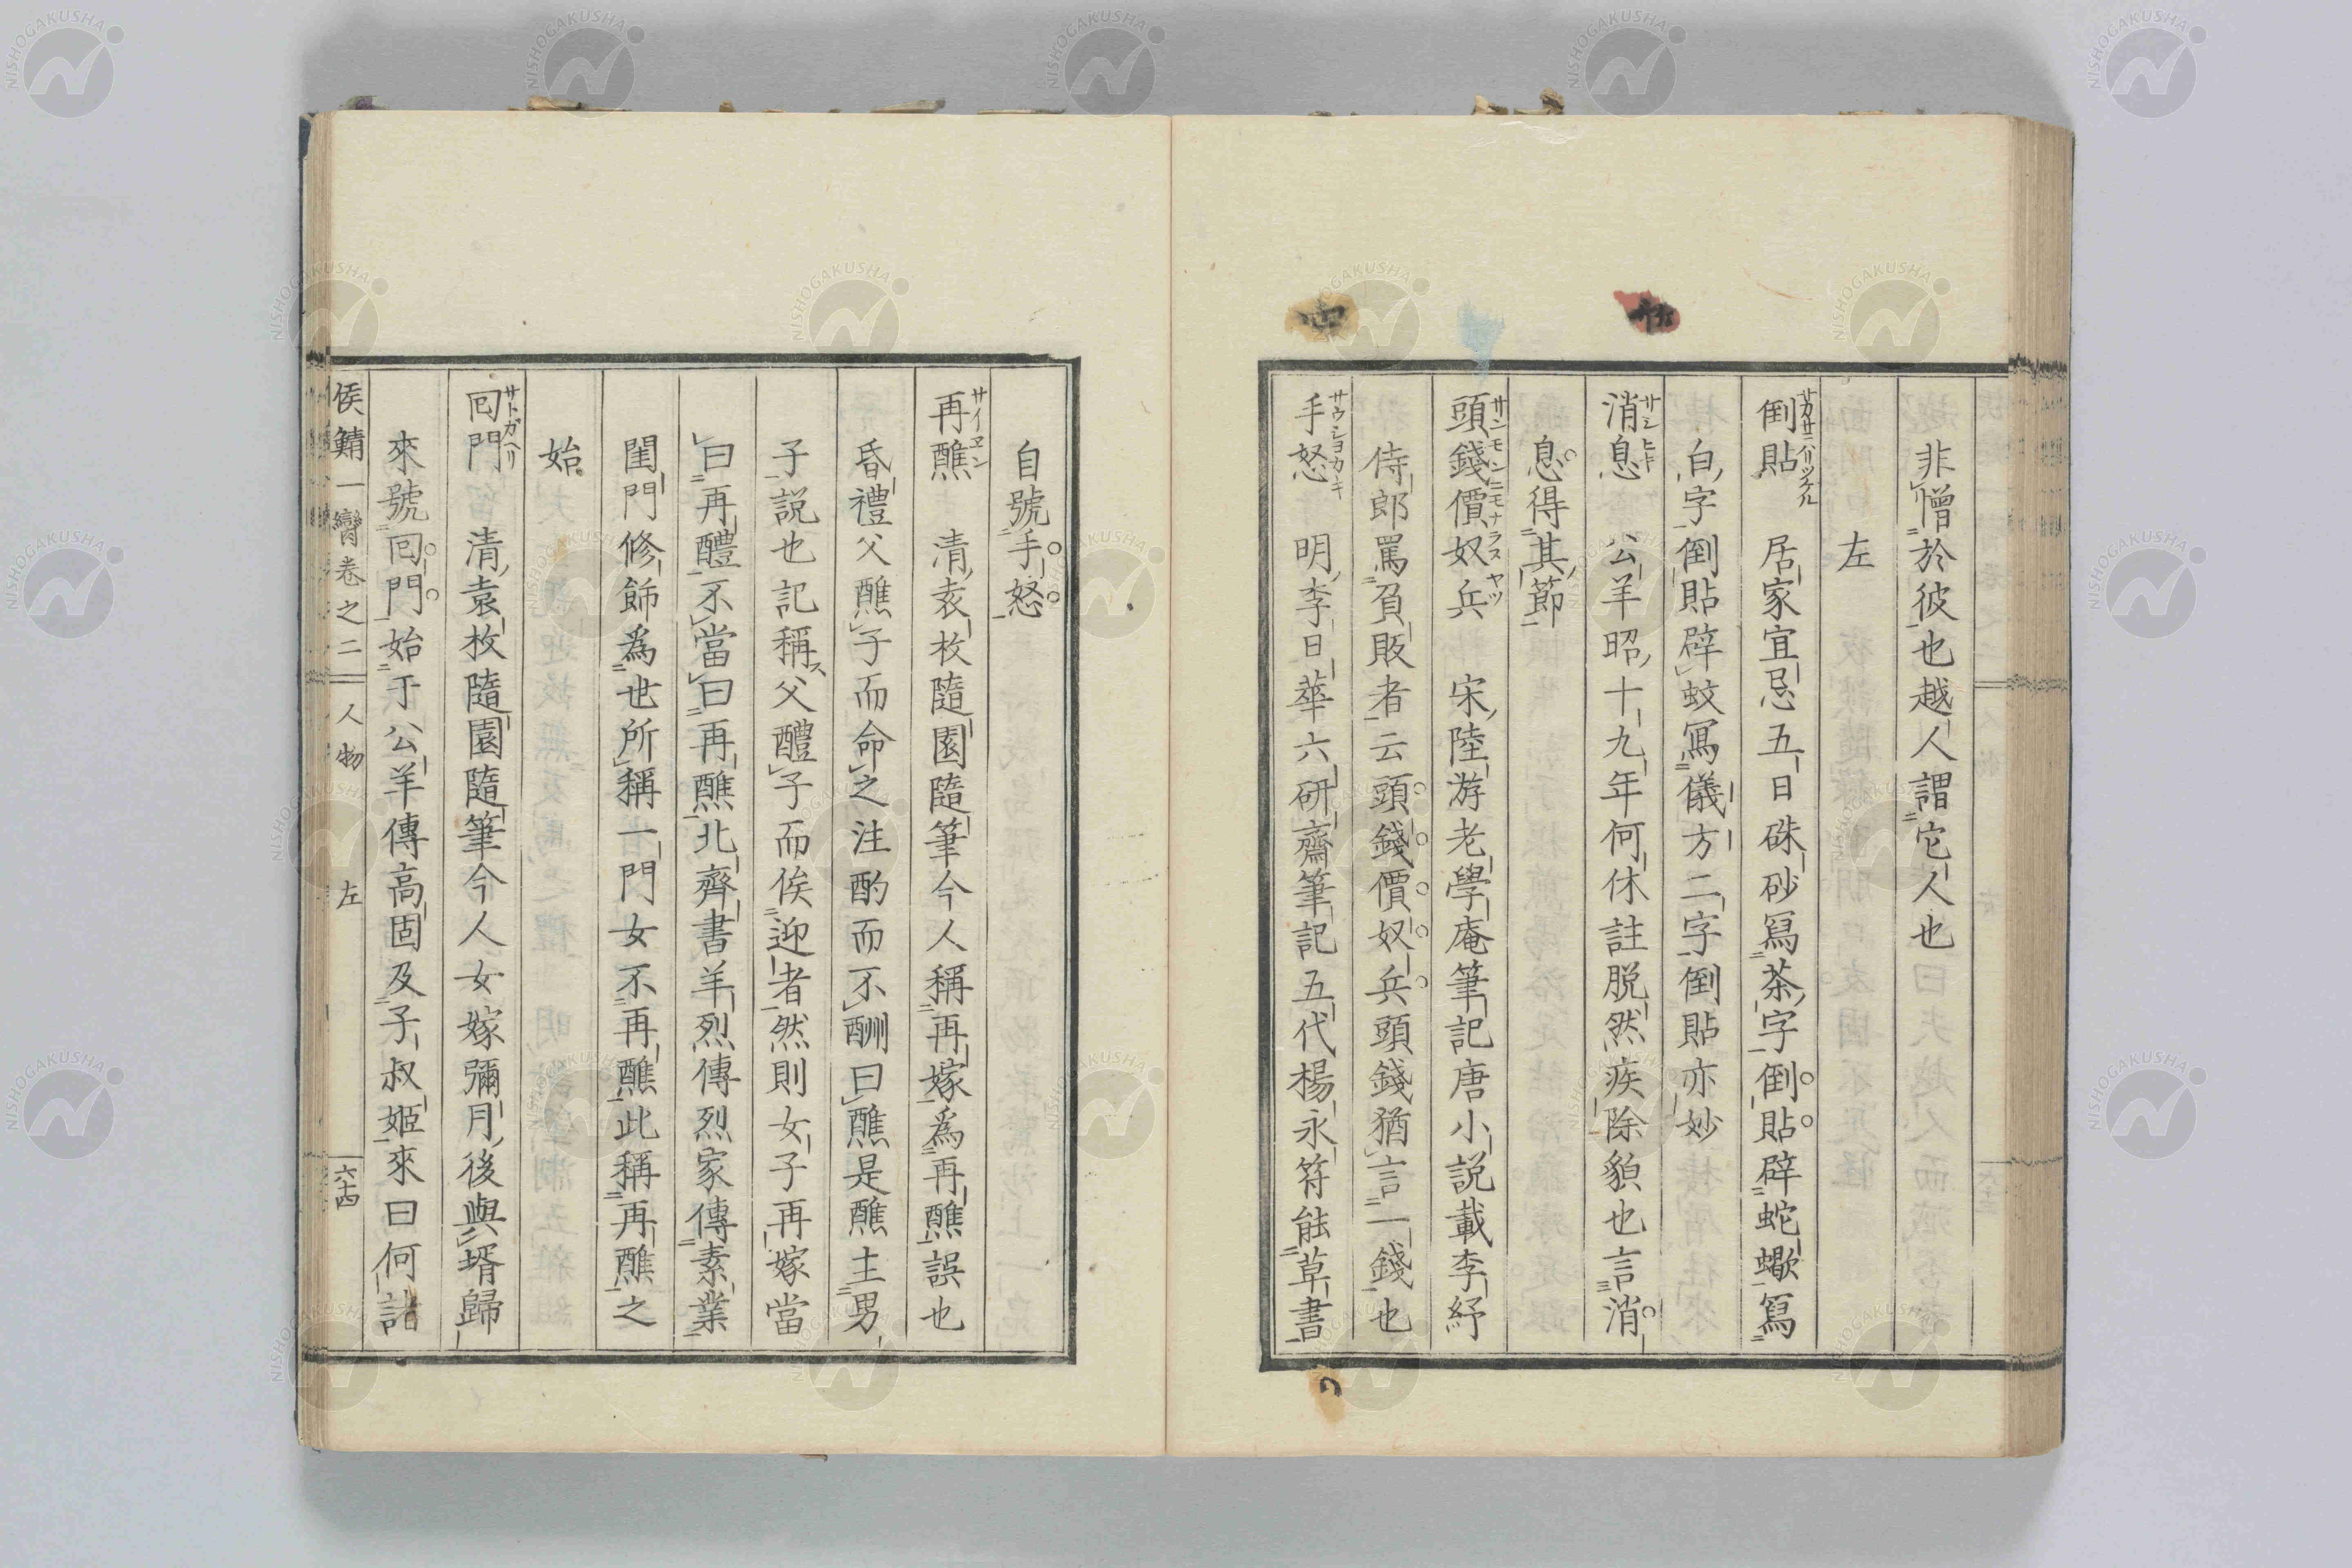 非僧於彼也越人謂它人也
左
倒貼 居家宜忌五日硃砂寫茶字倒貼辟蛇蠍寫
サカサニハリツケル
白字倒貼辟蚊寫儀方二字倒貼亦妙
消息 公羊昭十九年何休註脱然疾除貌也言消
サシヒキ
息得其節
頭錢價奴兵 宋陸游老學庵筆記唐小説載李紓
サンモンニモナラヌヤツ
侍郎罵負販者云頭錢價奴兵頭錢猶言一錢也
手怒 明李日華六研齋筆記五代楊永符能草書
サウショカキ
自號手怒
再醮 清袁枚隨園隨筆今人稱再嫁爲再醮誤也
サイヱン
昏禮父醮子而命之注酌而不酬曰醮是醮主男
子説也記稱父醴子而俟迎者然則女子再嫁當
ス
曰再醴不當曰再醮北齊書羊烈傳烈家傳素業
閨門修飾爲世所稱一門女不再醮此稱再醮之
始
囘門 清袁枚隨園隨筆今人女嫁彌月後與壻歸
サトガヘリ
來號囘門始于公羊傳高固及子叔姬來曰何諸
侯鯖一臠卷之二 人物 左 六十四
NISHOGAKUSHA